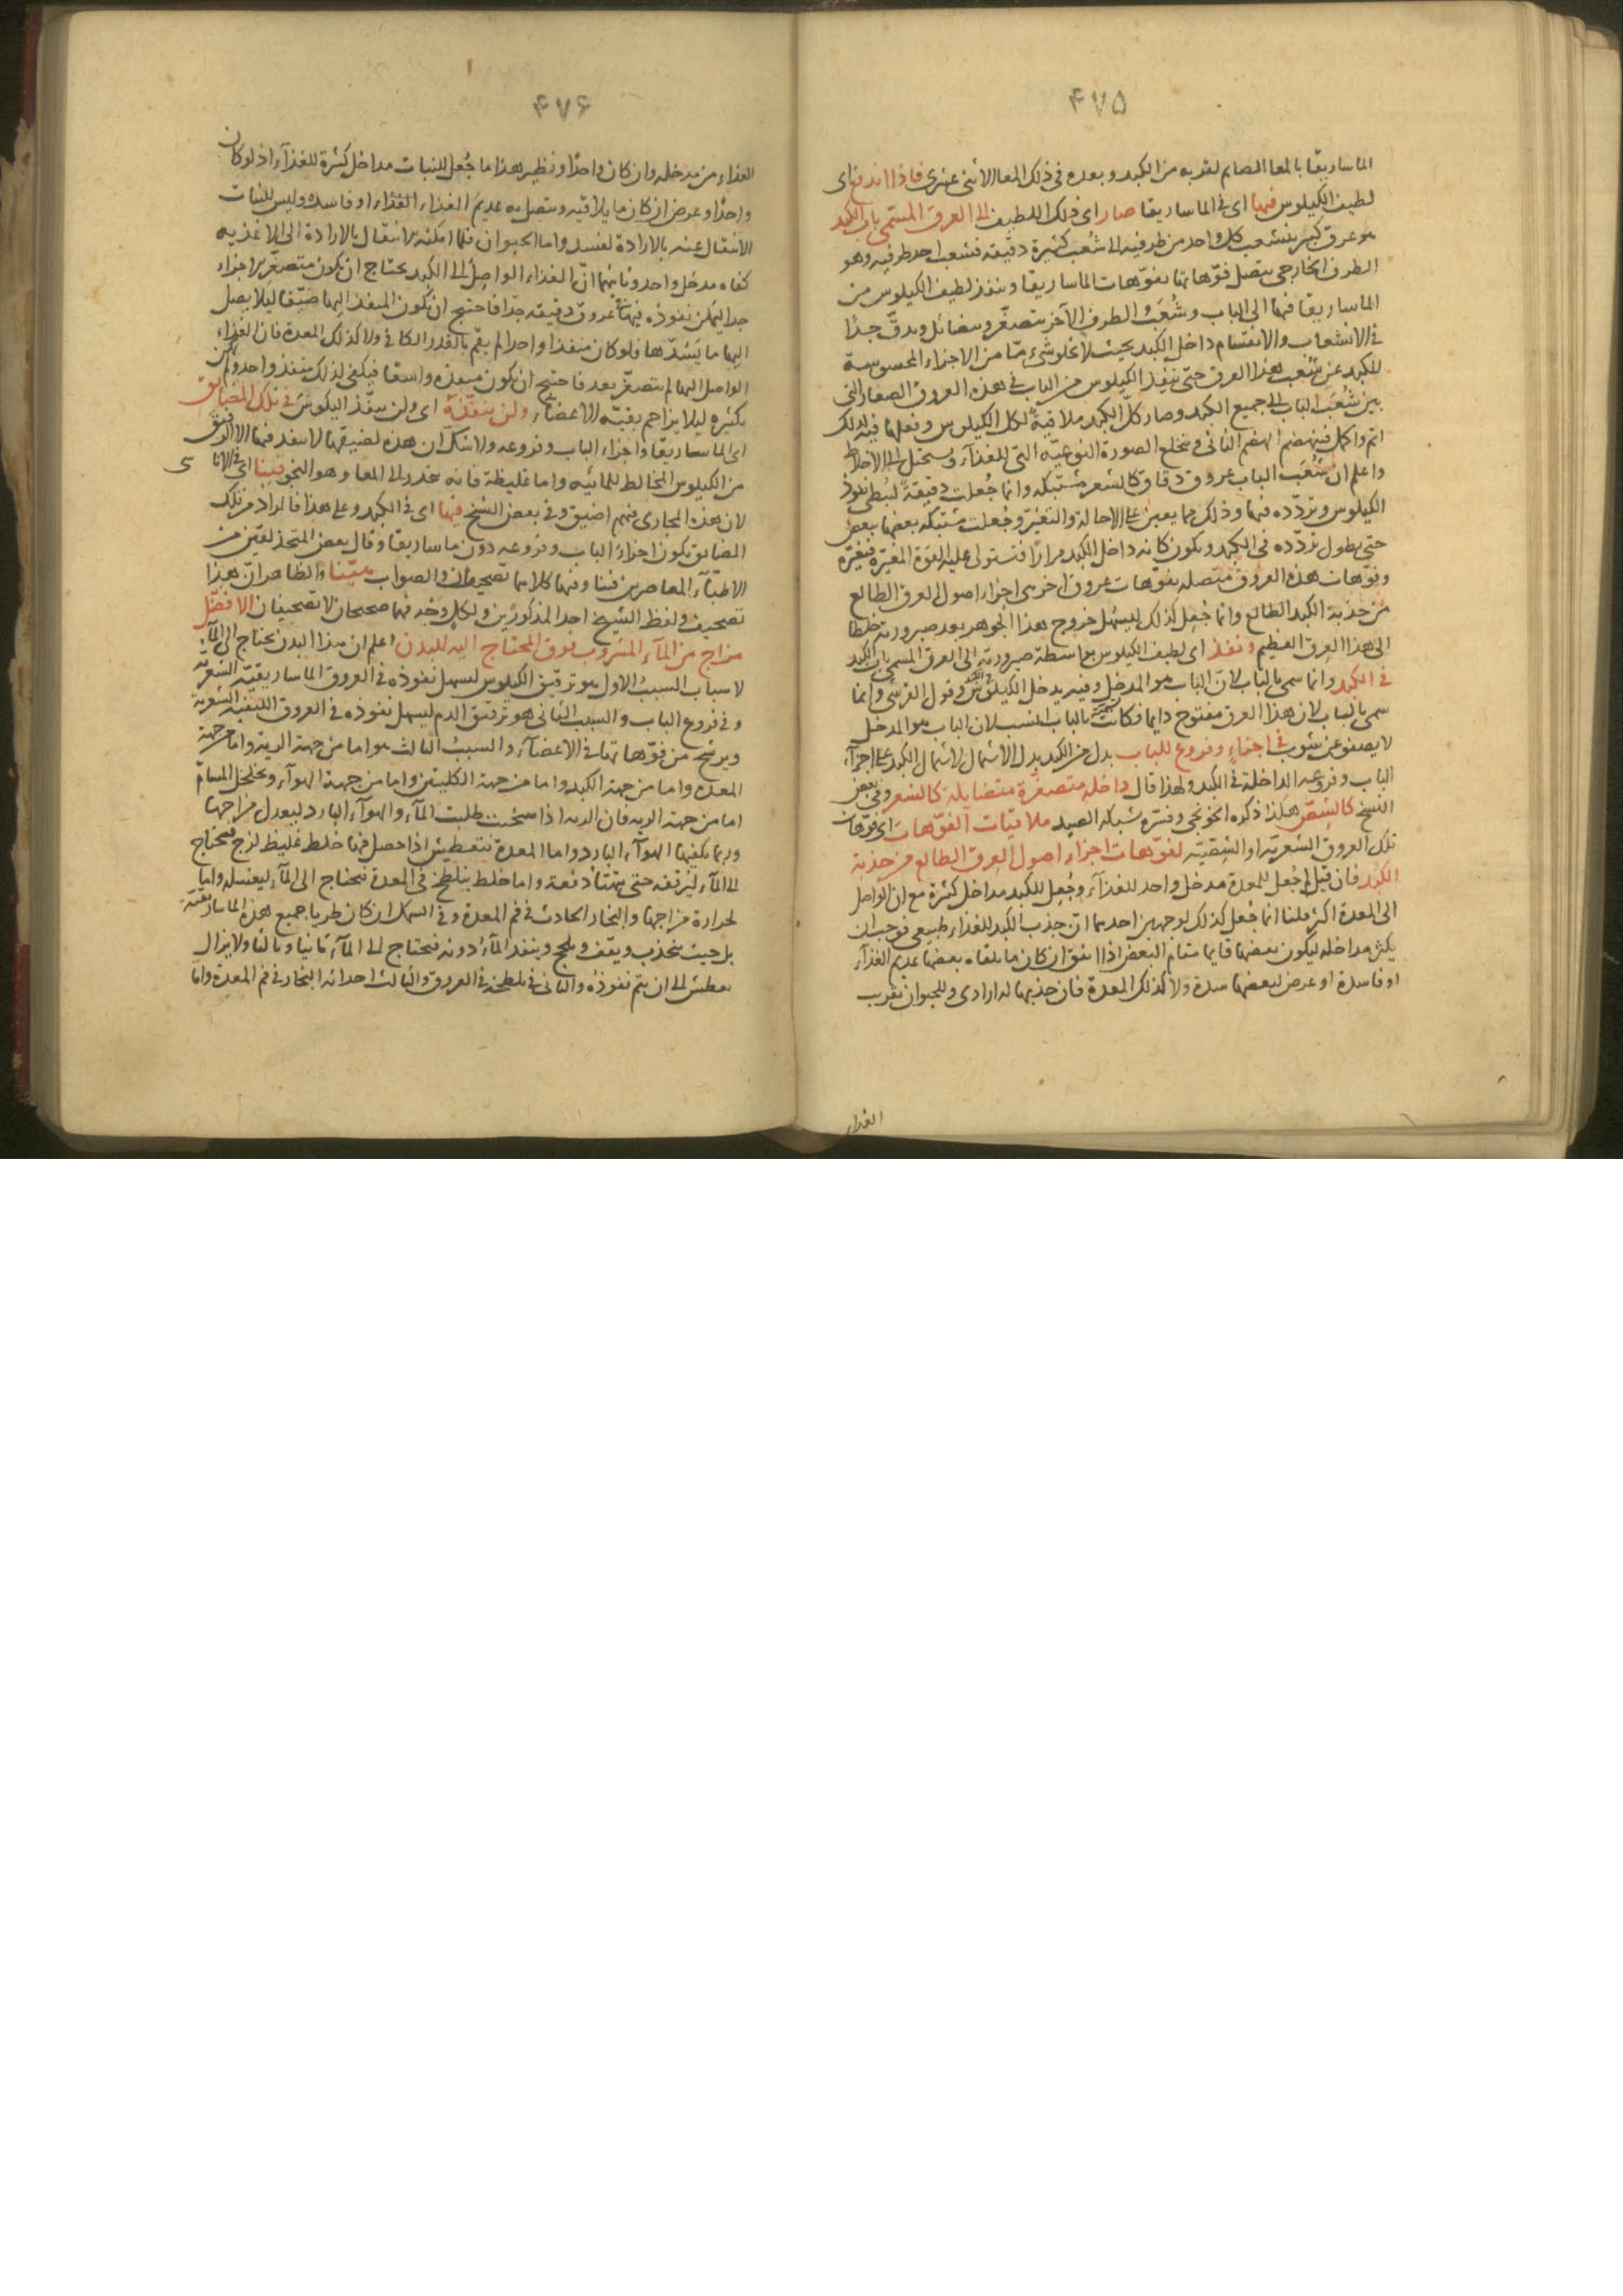 ۴۷۵
الماساريقا بالمعا الصايم لقربه من الكبد وبعده فى ذلك المعا الاثنى عشرى فاذا اندفع اى
لطيف الكيلوس فيها اى فى الماساريقا صار اى ذلك اللطيف الى العرق المسمى باب الكبد
هو عرق كبير ينشعب كل واحد من طرفيه الى شُعب كثيرة دقيقة فشعب احد طرفيه وهو
الطرف الخارجى يتصل فوّهاتها بفوّهات الماساريقا وينفذ لطيف الكيلوس من
الماساريقا فيها الى الباب وشُعَب الطرف الآخر يتصغّر ويتضائل ويدقّ جدًا
فى الانشعاب والانقسام داخل الكبد بحيث لا يخلو شىء مّا من الاجزاء المحسوسة
للكبد عن شُعب هذا العرق حتى ينفذ الكيلوس من الباب فى هذه العروق الصغار التى
بين شُعَب الباب الى جميع الكبد وصار كلّ الكبد ملاقيةً لكل الكيلوس وفعلها فيه لذلك
اتم واكمل فينهضم الهضم الثانى وينخلع الصورة النوعيّه التى للغذآء ويستحيل الى الاخلاط
واعلم ان شُعَب الباب عروق دقاق كالشعر مشتبكه وانما جُعلت دقيقةً لبُطئ نفوذ
الكيلوس وتردّده فيها وذلك مما يعين على الاحالة والتغيّر وجُعلت مشتبكه بعضها ببعض
حتى يطول تردّده فى الكبد ويكون كانه داخل الكبد مرارًا فتستولى عليه القوة المغيّرة فيغيّره
وفوّهات هذه العروق متصله بفوّهات عروق اخرى هى اجزاء اصول العرق الطالع
من حدبة الكبد الطالع وانما جُعل كذلك ليسهُل خروج هذا الجوهر بعد صيرورته خلطا
الى هذا العرق العظيم ونفذ اى لطيف الكيلوس بواسطة صيرورته الى العرق المسمى باب الكبد
فى الكبد وانما سمى بالباب لان الباب هو المدخل وفيه يدخل الكيلوس وقول القرشى وانما
سمى بالباب لان هذا العرق مفتوح دايما فكانت بالباب انسب لان الباب هو المدخل
لا يصفو عن شوب فى اجزاءٍ وفروع للباب بدل من الكبد بدل الاشتمال لاشتمال الكبد على اجزآء
الباب وفروعه الداخلة فى الكبد ولهذا قال داخلة متصغّرة متضايلة كالشعر وفى بعض
النسخ كالشقّر هكذا ذكره الخونجى وفسّره شبكة الصيد ملاقيات الفوّهات اى فوّهات
تلك العروق الشعريّه او الشقّيّه لفوّهات اجزاء اصول العرق الطالع من حدبة
الكبد فان قيل لم جُعل للمعدة مدخل واحد للغذآء وجُعل للكبد مداخل كثيرة مع ان الواصل
الى المعدة اكثر قلنا انما جُعل كذلك لوجهين احدهما انّ جذب الكبد للغذاء طبيعى فوجب ان
يكثر مداخله ليكون بعضها قايما مقام البعض اذا اتفق ان كان ما يلقاه بعضها عديم الغذآء
او فاسدة او عرض لبعضها سدة ولا كذلك المعدة فان جذبها له ارادى وللحيوان تقرب
الغذاء
۴۷۶
الغذاء من مدخله وان كان واحدًا ونظير هذا ما جُعل للنبات مداخل كثيرة للغذآء اذ لو كان
واحدًا وعرض ان كان ما يلاقيه ويتصل به عديم الغذاء الغذاء او فاسده وليس للنبات
الانتقال عنه بالارادة لفسد واما الحيوان فلما امكنه الانتقال بالارادة الى الاغذيه
كفاه مدخل واحد وثانيهما انّ الغذاء الواصل الى الكبد يحتاج ان يكون متصغّر الاجزاء
جدا ليمكن نفوذه فيها فى عروق دقيقه جدّا فاحتيج ان يكون المنفذ اليها ضيّقا ليلا يصل
اليها ما يَسُدّها فلو كان منفذا واحدا لم يقم بالقدر الكافى ولا كذلك المعدة فان الغذاء
الواصل اليها لم يتصغّر بعد فاحتيج ان يكون منفذه واسعا فيكفى لذلك منفذ واحد ولم يكن
بكثيره ليلا يزاحم بقيّه الاعضآء ولن ينفّذه اى ولن ينفّذ الكيلوس فى تلك المضايق
اى الماساريقا واجزاء الباب وفروعه ولا شك ان هذه لضيقها لا ينفذ فيها الا الرقيق
من الكيلوس المخالط للمائيه واما غليظة فانه ينحدر الى المعا وهو النجو قينا اى فى الانا
لان هذه المجارى فيهم اضيق وفى بعض النسخ فيها اى فى الكبد وعلى هذا فالمراد من تلك
المضايق يكون اجزاءُ الباب وفروعه دون ماساريقا وقال بعض المتحذلقين من
الاطبّآء المعاصرين فينا وفيها كلاهما تصحيفان والصواب والظاهر انّ هذا
تصحيف ولفظ الشيخ احد المذكورَين ولكلٍ وَجْه فهما صحيحان لا تصحيفان الا فضّل
مزاج من المآء المشروب فوق المحتاج اليه للبدن اعلم ان هذا البدن يحتاج الى المآء
لاسباب السببُ الاول هو ترقيق الكيلوس ليسهل نفوذه فى العروق الماساريقيّه الشعريّه
وفى فروع الباب والسبب الثانى هو ترقيق الدم ليسهل نفوذه فى العروق الليفيّه الشعرية
ويرشح من فوّهاتها فى الاعضآء والسببُ الثالث هو اما من جهة الرية واما من جهة
المعدة واما من جهة الكبد واما من جهة الكليتين واما من جهة الهوآء وتخلخل المسامّ
اما من جهة الريه فان الريه اذا سخنت طلبت المآء والهوآء البارد ليعدل مزاجها
وربما يكفيها الهوآء البارد واما المعدة فتعطيش اذا حصل فيها خلط غليظ لزج فيحتاج
الى المآء ليُرققه حتى يتهيّأ دفعة واما خلط يتلطخ فى المعدة فيحتاج الى المآء ليغسله واما
لحرارة مزاجها والبخار الحادث فى فم المعدة وفى السمك ان كان طريا جميع هذه الماساريقيّة
بل حيث ينجذب ويقف ويلحج وينفذ المآءُ دونه فتحتاج الى المآء ثانيا وثالثا ولا يزال
يعطش الى ان يتم نفوذُه والثانى فى تلطخه فى العروق والثالث احداثه البخار فى فم المعدة واما